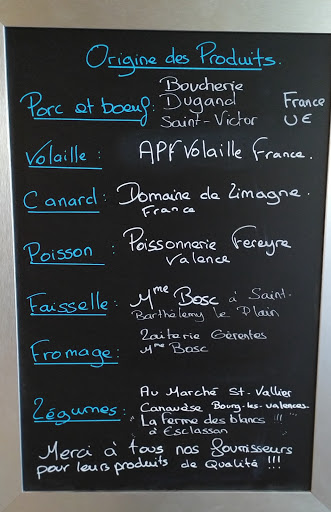 Origine des Produits.
Porc et boeuf: Boucherie Dugand Saint-Victor France UE
Volaille : APF Volaille France.
Canard: Domaine de Limagne. France
Poisson : Poissonnerie Fereyre Valence
Faisselle: Mme Bosc à Saint-
Barthélemy le Plain
Fromage: Laiterie Gèrentes
Mme Bosc
Légumes: Au Marché St-Vallier
Canavèse Bourg-les-Valences
La ferme des blancs !!!
à Esclassan
Merci à tous nos fournisseurs
pour leurs produits de Qualité !!!